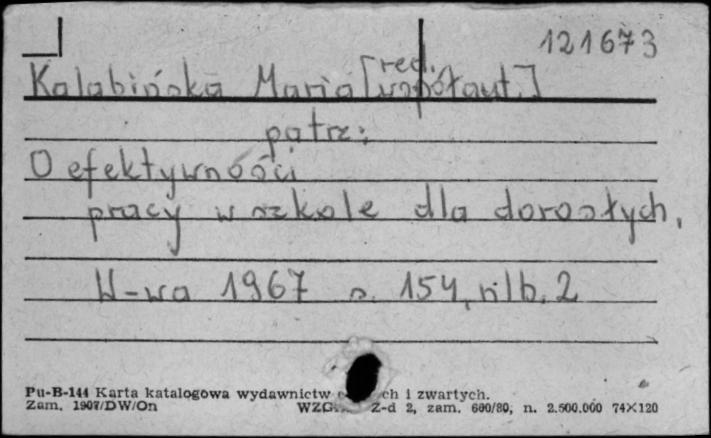 121673
Kalabińska Maria [red. współaut.]
patrz:
O efektywności
pracy w szkole dla dorosłych,
W-wa 1967 s. 154, nlb. 2
Pu-B-144 Karta katalogowa wydawnictw ch i zwartych.
Zam. 1907/DW/On Z-d 2, zam. 600/80, n. 2.500.000 74×120